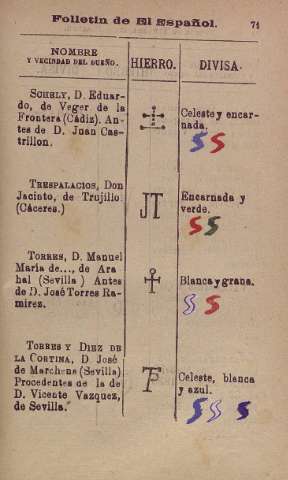 Folletin de El Español. 71
NOMBRE
Y VECINDAD DEL DUEÑO.
HIERRO.
DIVISA.
SCHELY, D. Eduar-
do, de Veger de la
Frontera (Cádiz). An-
tes de D. Juan Cas-
trillon.
Celeste y encar-
nada.
TRESPALACIOS, Don
Jacinto, de Trujillo
(Cáceres.)
JT
Encarnada y
verde.
TORRES, D. Manuel
María de..., de Ara-
hal (Sevilla) Antes
de D. José Torres Ra-
mirez.
Blanca y grana.
TORRES Y DIEZ DE
LA CORTINA, D. José
de Marchena (Sevilla)
Procedentes de la de
D. Vicente Vazquez,
de Sevilla.
Celeste, blanca
y azul.